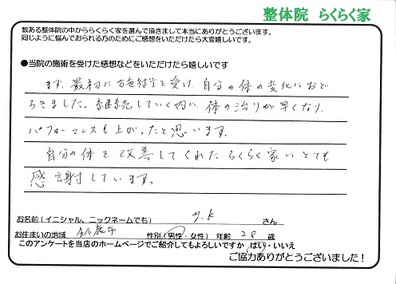 整体院 らくらく家
数ある整体院の中かららくらく家を選んで頂きまして本当にありがとうございます。
同じように悩んでおられる方のためにご感想をいただけたら大変嬉しいです。
●当院の施術を受けた感想などをいただけたら嬉しいです
まず、最初に施術を受け、自分の体の変化におど
ろきました。継続していく内に、体の治りが早くなり、
パフォーマンスも上がったと思います。
自分の体を改善してくれたらくらく家にとても
感謝しています。
お名前(イニシャル、ニックネームでも) Y.K さん
お住まいの地域 性別(男性・女性) 年齢 28 歳
このアンケートを当店のホームページでご紹介してもよろしいですか はい・いいえ
ご協力ありがとうございました!